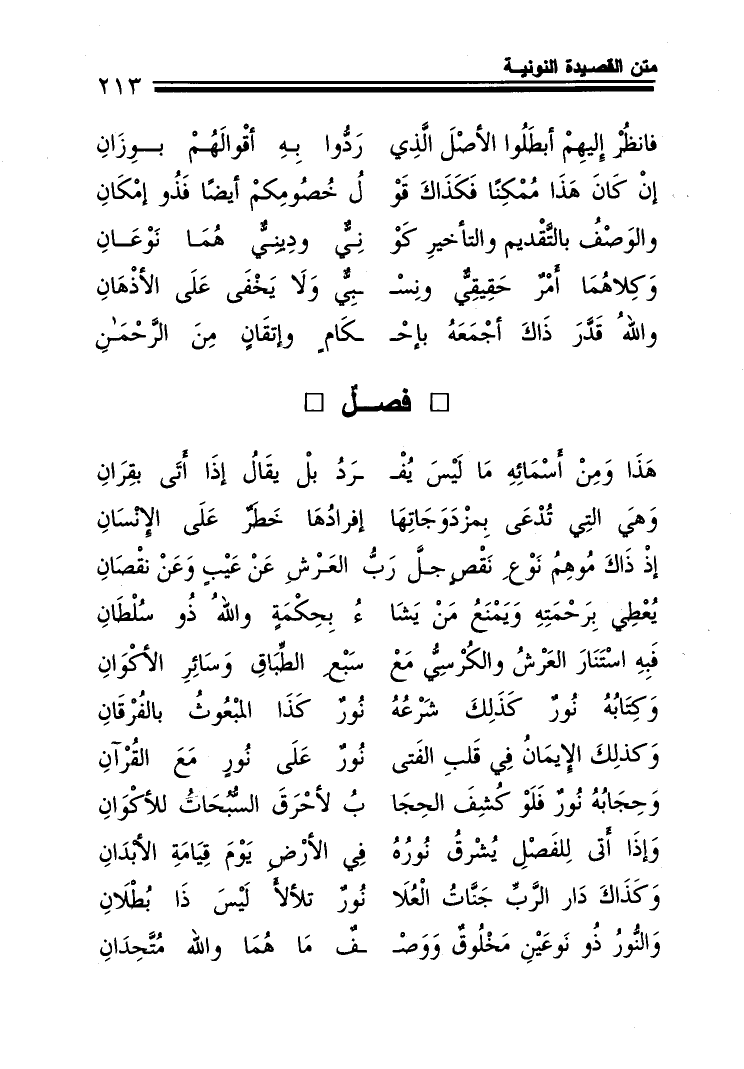 متن القصيدة النونية
٢١٣
فانظُرْ إليهِمْ أبطَلُوا الأصْلَ الَّذِي رَدُّوا بِهِ أقْوالَهُمْ بوِزَانِ
إنْ كَانَ هَذَا مُمْكِنًا فكَذَاكَ قَوْ لُ خُصُومِكمْ أيضًا فَذُو إمْكَانِ
والوَصْفُ بالتَّقْديم والتأخيرِ كَوْ نِيٌّ ودِينِيٌّ هُمَا نَوْعَانِ
وَكِلاهُمَا أَمْرٌ حَقِيقِيٌّ ونِسْـ ـبِيٌّ وَلَا يَخْفَى عَلَى الأذْهَانِ
واللهُ قَدَّرَ ذَاكَ أجْمَعَهُ بإحْـ ـكَامٍ وإتقَانٍ مِنَ الرَّحْمَـٰنِ
□ فصـلٌ □
هَذَا وَمِنْ أَسْمَائِهِ مَا لَيْسَ يُفْـ ـرَدُ بلْ يقَالُ إذَا أَتَى بقِرَانِ
وَهيَ التِي تُدْعَى بِمزْدَوجَاتِهَا إفرادُهَا خَطَرٌ عَلَى الإنْسَانِ
إذْ ذَاكَ مُوهِمُ نَوْعِ نَقْصٍ جلَّ رَبُّ العَرْشِ عَنْ عَيْبٍ وَعَنْ نقْصَانِ
يُعْطِي بِرَحْمَتِهِ وَيَمْنَعُ مَنْ يَشَا ءُ بِحِكْمَةٍ واللهُ ذُو سُلْطَانِ
فَبِهِ اسْتَنَارَ العَرْشُ والكُرْسِيُّ مَعْ سَبْعِ الطِّبَاقِ وَسَائرِ الأكْوَانِ
وَكِتَابُهُ نُورٌ كَذَلِكَ شَرْعُهُ نُورٌ كَذَا المْبْعُوثُ بالفُرْقَانِ
وَكذلِكَ الإيمَانُ فِي قَلبِ الفَتى نُورٌ عَلَى نُورٍ مَعَ القُرْآنِ
وَحِجَابُهُ نُورٌ فَلَوْ كُشِفَ الحِجَا بُ لأحْرَقَ السُّبُحَاتُ للأكْوَانِ
وَإذَا أَتى لِلفَصْلِ يُشْرقُ نُورُهُ فِي الأرْضِ يَوْمَ قِيَامَةِ الأبْدَانِ
وَكَذَاكَ دَار الرَّبِّ جَنَّاتُ الْعُلَا نُورٌ تلألأَ لَيْسَ ذَا بُطْلَانِ
وَالنُّورُ ذُو نَوعَيْنِ مَخْلُوقٌ وَوَصْـ ـفٌ مَا هُمَا والله مُتَّحِدَانِ